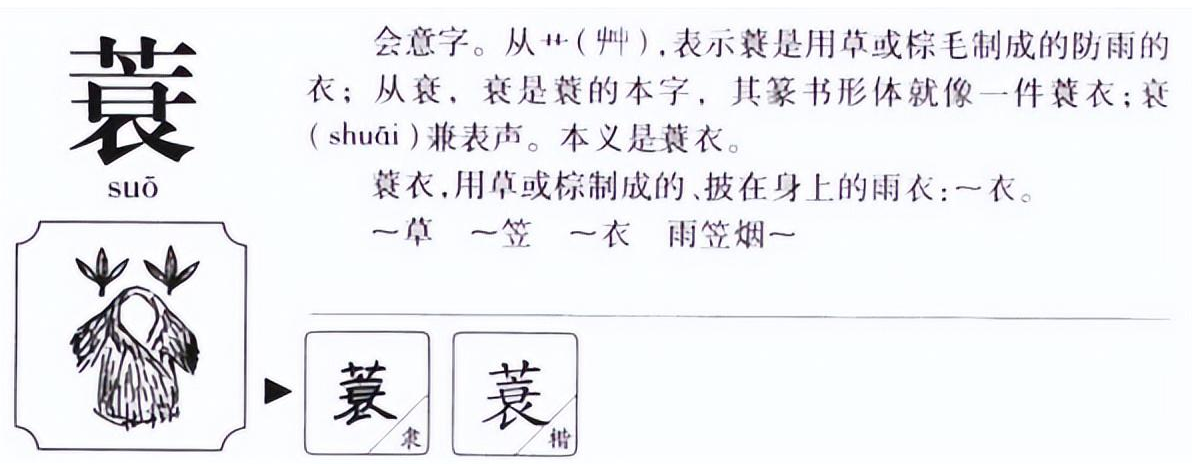 蓑
suō
会意字。从艹(艸),表示蓑是用草或棕毛制成的防雨的
衣；从衰，衰是蓑的本字，其篆书形体就像一件蓑衣；衰
(shuāi)兼表声。本义是蓑衣。
蓑衣,用草或棕制成的、披在身上的雨衣:～衣。
～草 ～笠 ～衣 雨笠烟～
蓑 隶
蓑 楷